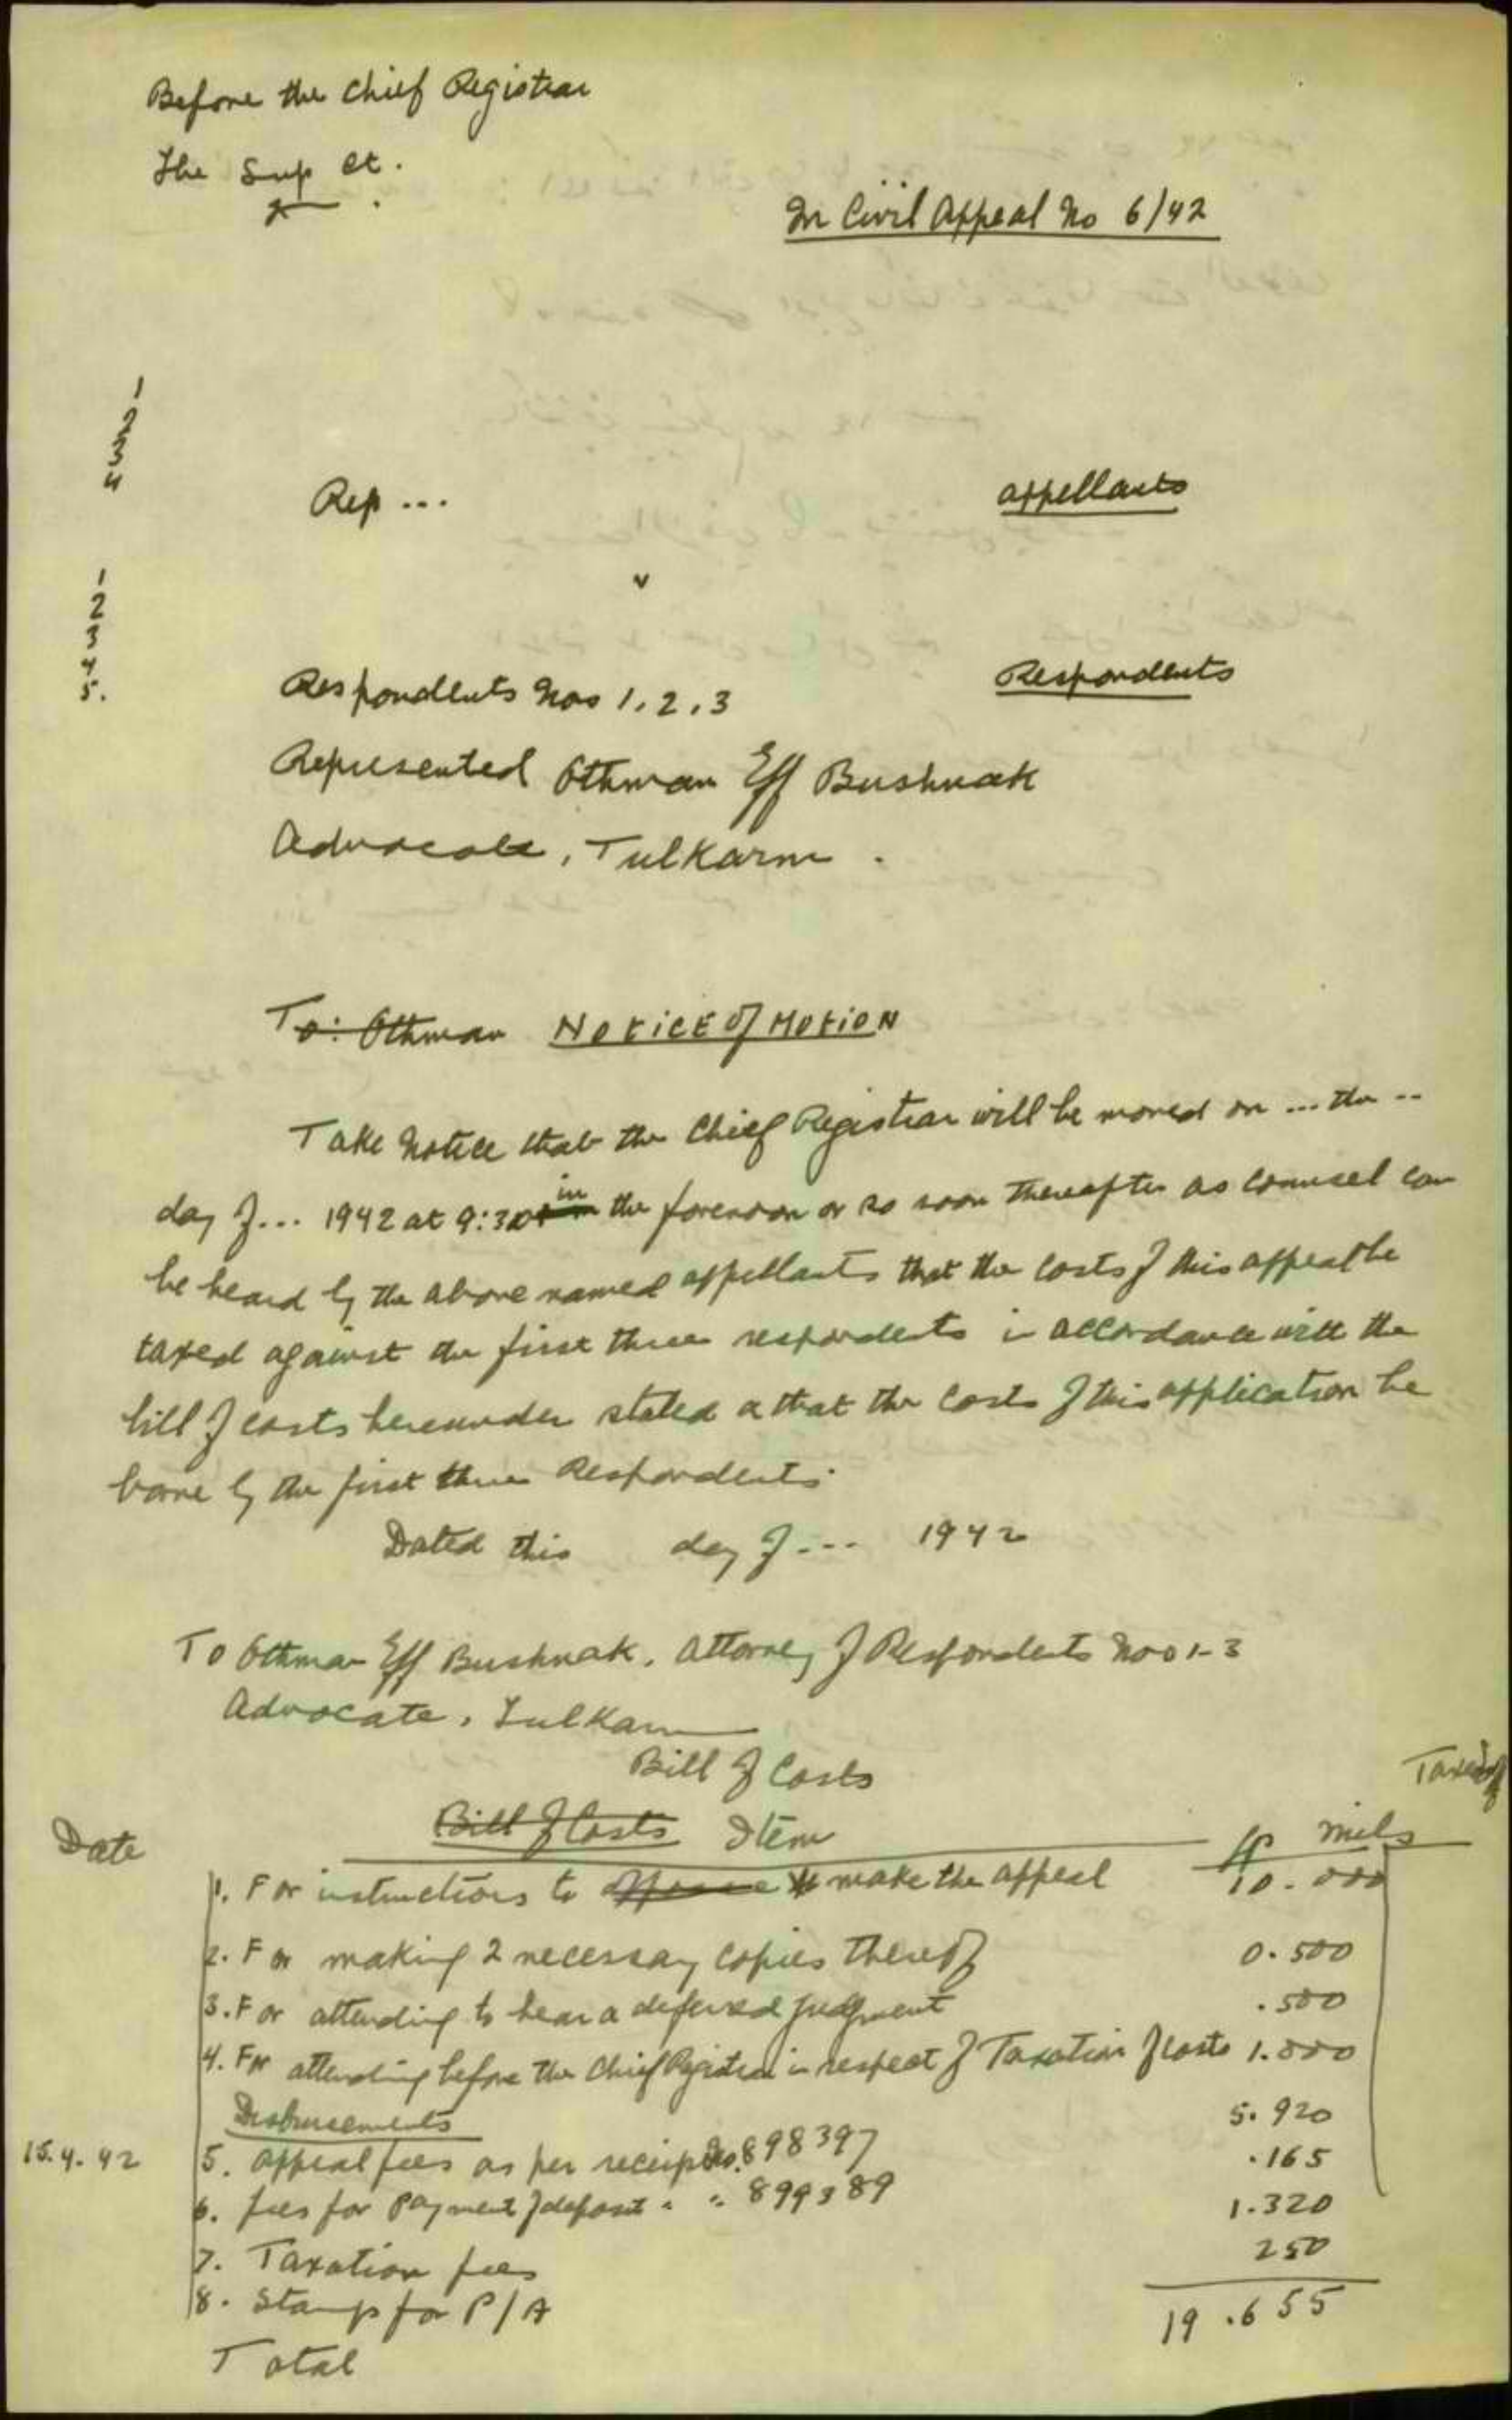 Before the Chief Registrar
The Sup Ct.
In Civil Appeal No 6/42
1
2
3
4
Rep ...
appellants
v
1
2
3
4
5.
Respondents
Respondents Nos 1, 2, 3
Represented Othman Eff Bushnak
Advocate, Tulkarm.
To: Othman NOTICE of MOTION
Take notice that the Chief Registrar will be moved on ... the ..
day of ... 1942 at 9:30 in the forenoon or so soon thereafter as counsel can
be heard by the above named appellants that the costs of this appeal be
taxed against the first three respondents in accordance with the
bill of costs hereunder stated & that the costs of this application be
borne by the first three Respondents.
Dated this day of ... 1942
To Othman Eff Bushnak, Attorney of Respondents Nos 1-3
Advocate, Tulkarm
Bill of Costs
Taxed off
Date Bill of Costs Item LP mils
1. For instructions to make the appeal 10.000
2. For making 2 necessary copies thereof 0.500
3. For attending to hear a deferred judgment .500
4. For attending before the Chief Registrar in respect of Taxation of costs 1.000
Disbursements
15.4.42 5. Appeal fees as per receipt No. 898397 5.920
6. fees for payment of deposit " " 899389 .165
7. Taxation fees 1.320
8. Stamp for P/A 250
Total 19.655